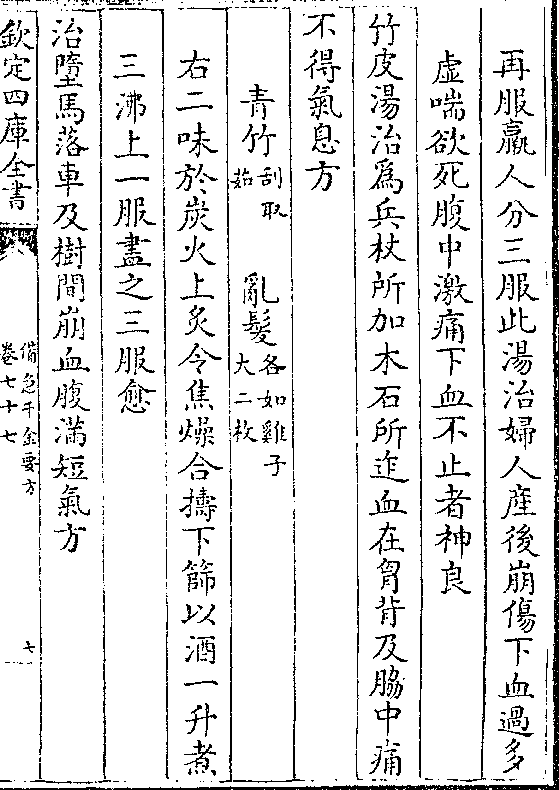 再服羸人分三服此湯治婦人産後崩傷下血過多
虚喘欲死腹中激痛下血不止者神良
竹皮湯治爲兵杖所加木石所迮血在胷背及脇中痛
不得氣息方
青竹刮取茹　亂髮各如雞子大二枚
右二味於炭火上炙令焦燥合擣下篩以酒一升煮
三沸上一服盡之三服愈
治墮馬落車及樹間崩血腹滿短氣方
欽定四庫全書
備急千金要方
卷七十七
七